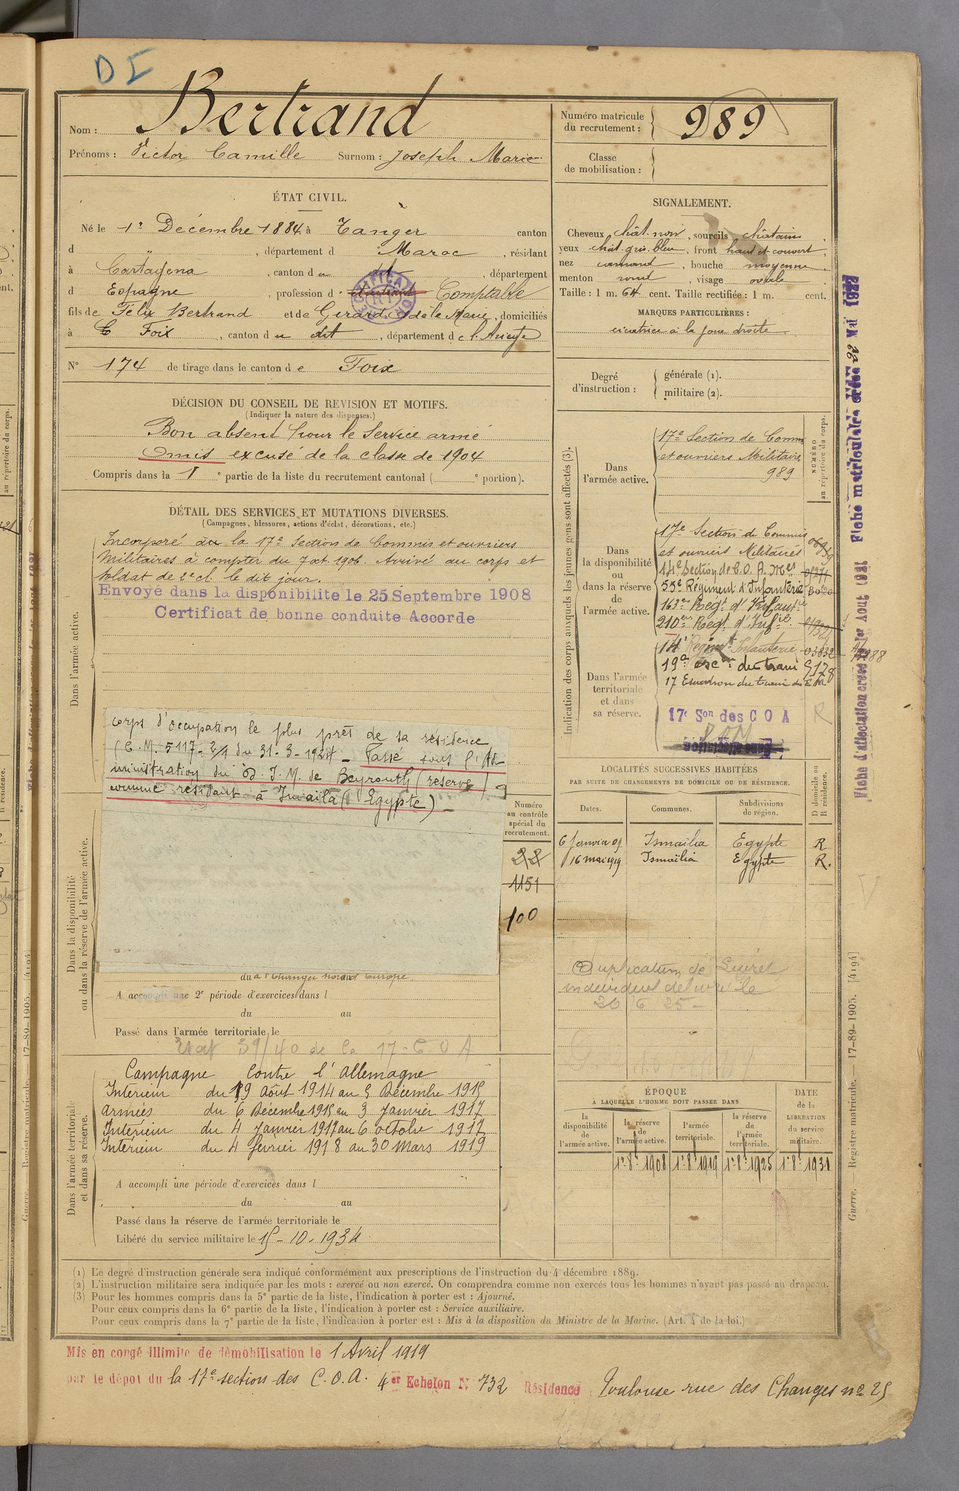 DI
Nom : Bertrand
Prénoms : Victor Camille Surnom : Joseph Marie
Numéro matricule du recrutement : 989
Classe de mobilisation :
ÉTAT CIVIL.
Né le 1er Décembre 1884 à Tanger canton
d , département d Maroc , résidant
à Cartagena , canton d u dt , département
d Espagne , profession d Comptable
fils de Félix Bertrand et de Gerard de la Marie, domiciliés
à Foix , canton d u dit , département de l'Ariège
N° 174 de tirage dans le canton d e Foix
SIGNALEMENT.
Cheveux chât. noir , sourcils châtains
yeux chât. gris bleu , front haut et couvert
nez camard , bouche moyenne
menton rond , visage ovale
Taille : 1 m. 64 cent. Taille rectifiée : 1 m. cent.
MARQUES PARTICULIÈRES :
cicatrice à la joue droite
Degré d'instruction : générale (1).
militaire (2).
DÉCISION DU CONSEIL DE REVISION ET MOTIFS.
(Indiquer la nature des dispenses.)
Bon absent pour le Service armé
Omis excusé de la classe de 1904
Compris dans la 1e partie de la liste du recrutement cantonal ( e portion).
DÉTAIL DES SERVICES ET MUTATIONS DIVERSES.
(Campagnes, blessures, actions d'éclat, décorations, etc.)
Incorporé à la 17e Section de Commis et ouvriers
Militaires à compter du 7 oct 1906. Arrivé au corps et
soldat de 2e cl. le dit jour.
Envoyé dans la disponibilite le 25 Septembre 1908
Certificat de bonne conduite Accorde
Dans l'armée active.
corps d'occupation le plus près de sa résidence
Passé sous l'Ad-
ministration du B. I. M. de Beyrouth (réserve)
comme résidant à Ismaïla (Egypte)
Ou dans la disponibilité
ou dans la réserve de l'armée active.
Numéro au contrôle spécial du recrutement.
22
1151
100
A accompli une 2e période d'exercices dans l
du au
Passé dans l'armée territoriale le
39/40 de la 17 - C O A
Campagne contre l'Allemagne
Intérieur du 19 Août 1914 au 5 Décembre 1915
Armées du 6 Décembre 1915 au 3 Janvier 1917
Intérieur du 4 Janvier 1917 au 6 octobre 1917
Intérieur du 4 février 1918 au 30 Mars 1919
Dans l'armée territoriale
et dans sa réserve.
A accompli une période d'exercices dans l
du au
Passé dans la réserve de l'armée territoriale le
Libéré du service militaire le 15-10-1934
Indication des corps auxquels les jeunes gens sont affectés (3).
NUMÉRO au répertoire du corps.
Dans l'armée active.
17e Section de Commis
et ouvriers Militaires
989
Dans la disponibilité ou dans la réserve de l'armée active.
17e Section de Commis
et ouvriers Militaires
14e Section de C. O. A.
55e Régiment d'Infanterie
163e Régt d'Infanterie
210e Régt d'Infie
Dans l'armée territoriale et dans sa réserve.
14e Régiment Infanterie
19e Escon du train
17 Escadron du train
17e Son des C O A
LOCALITÉS SUCCESSIVES HABITÉES
PAR SUITE DE CHANGEMENTS DE DOMICILE OU DE RÉSIDENCE.
Dates. Communes. Subdivisions de région. D domicile ou R résidence.
6 Janvier 09 Ismaïlia Egypte R
16 mai 1919 Ismaïlia Egypte R.
Duplicata de livret
individuel délivré le
20 6 25
ÉPOQUE
À LAQUELLE L'HOMME DOIT PASSER DANS
la disponibilité de l'armée active. la réserve de l'armée active. l'armée territoriale. la réserve de l'armée territoriale. DATE de la LIBÉRATION du service militaire.
1-8-1908 1-8-1919 1-8-1925 1-8-1931
(1) Le degré d'instruction générale sera indiqué conformément aux prescriptions de l'instruction du 4 décembre 1889.
(2) L'instruction militaire sera indiquée par les mots : exercé ou non exercé. On comprendra comme non exercés tous les hommes n'ayant pas passé au drapeau.
(3) Pour les hommes compris dans la 5e partie de la liste, l'indication à porter est : Ajourné.
Pour ceux compris dans la 6e partie de la liste, l'indication à porter est : Service auxiliaire.
Pour ceux compris dans la 7e partie de la liste, l'indication à porter est : Mis à la disposition du Ministre de la Marine. (Art. 4 de la loi.)
Mis en congé illimité de démobilisation le 1 Avril 1919
par le dépôt du la 17e section des C.O.A. 4er Echelon N 732 Résidence Toulouse rue des Changes no 25
Fiche d'affectation créée le 1er Aout 1931
Guerre. — Registre matricule. — 17-89-1905. [4194]